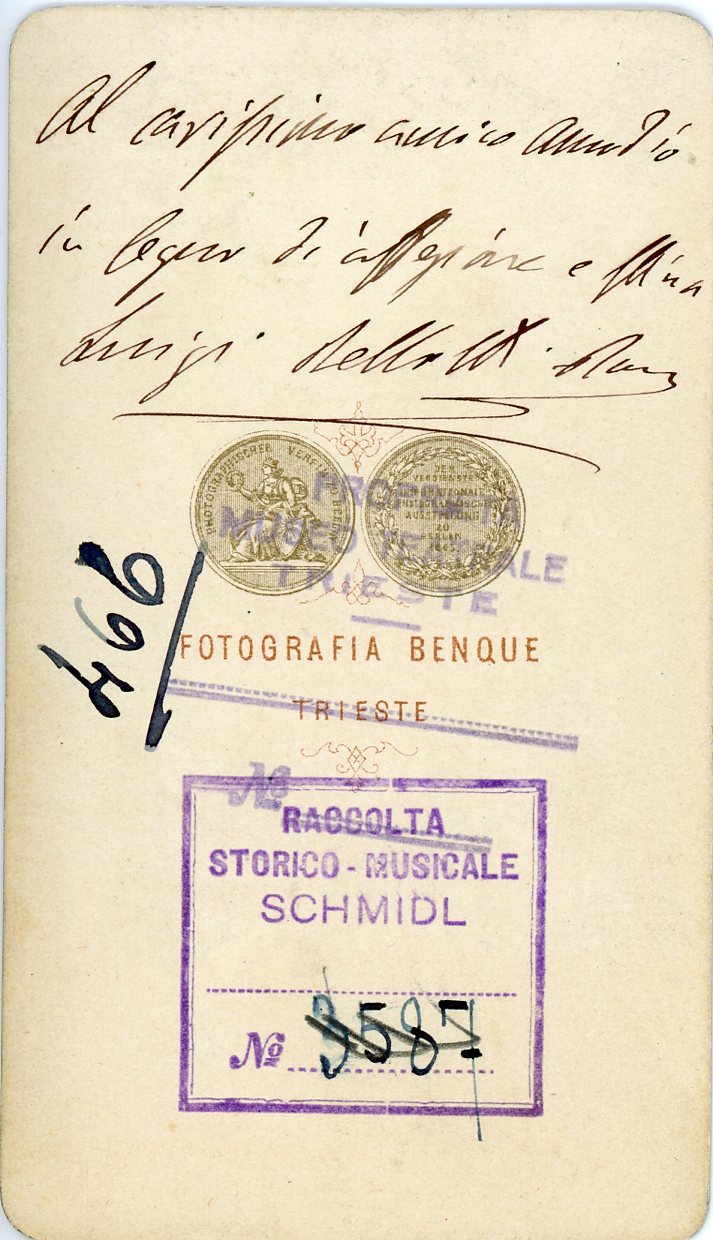 Al carissimo amico Amedio
in segno di affezione e stima
Luigi
PHOTOGRAPHISCHER VEREIN ZU BERLIN
DEM
VERDIENSTE
INTERNATIONALE
PHOTOGRAPHISCHE
AUSSTELLUNG
ZU
BERLIN
1865
PROPRIETÀ
MUSEO TEATRALE
TRIESTE
466
FOTOGRAFIA BENQUE
TRIESTE
No
RACCOLTA
STORICO-MUSICALE
SCHMIDL
No 3587